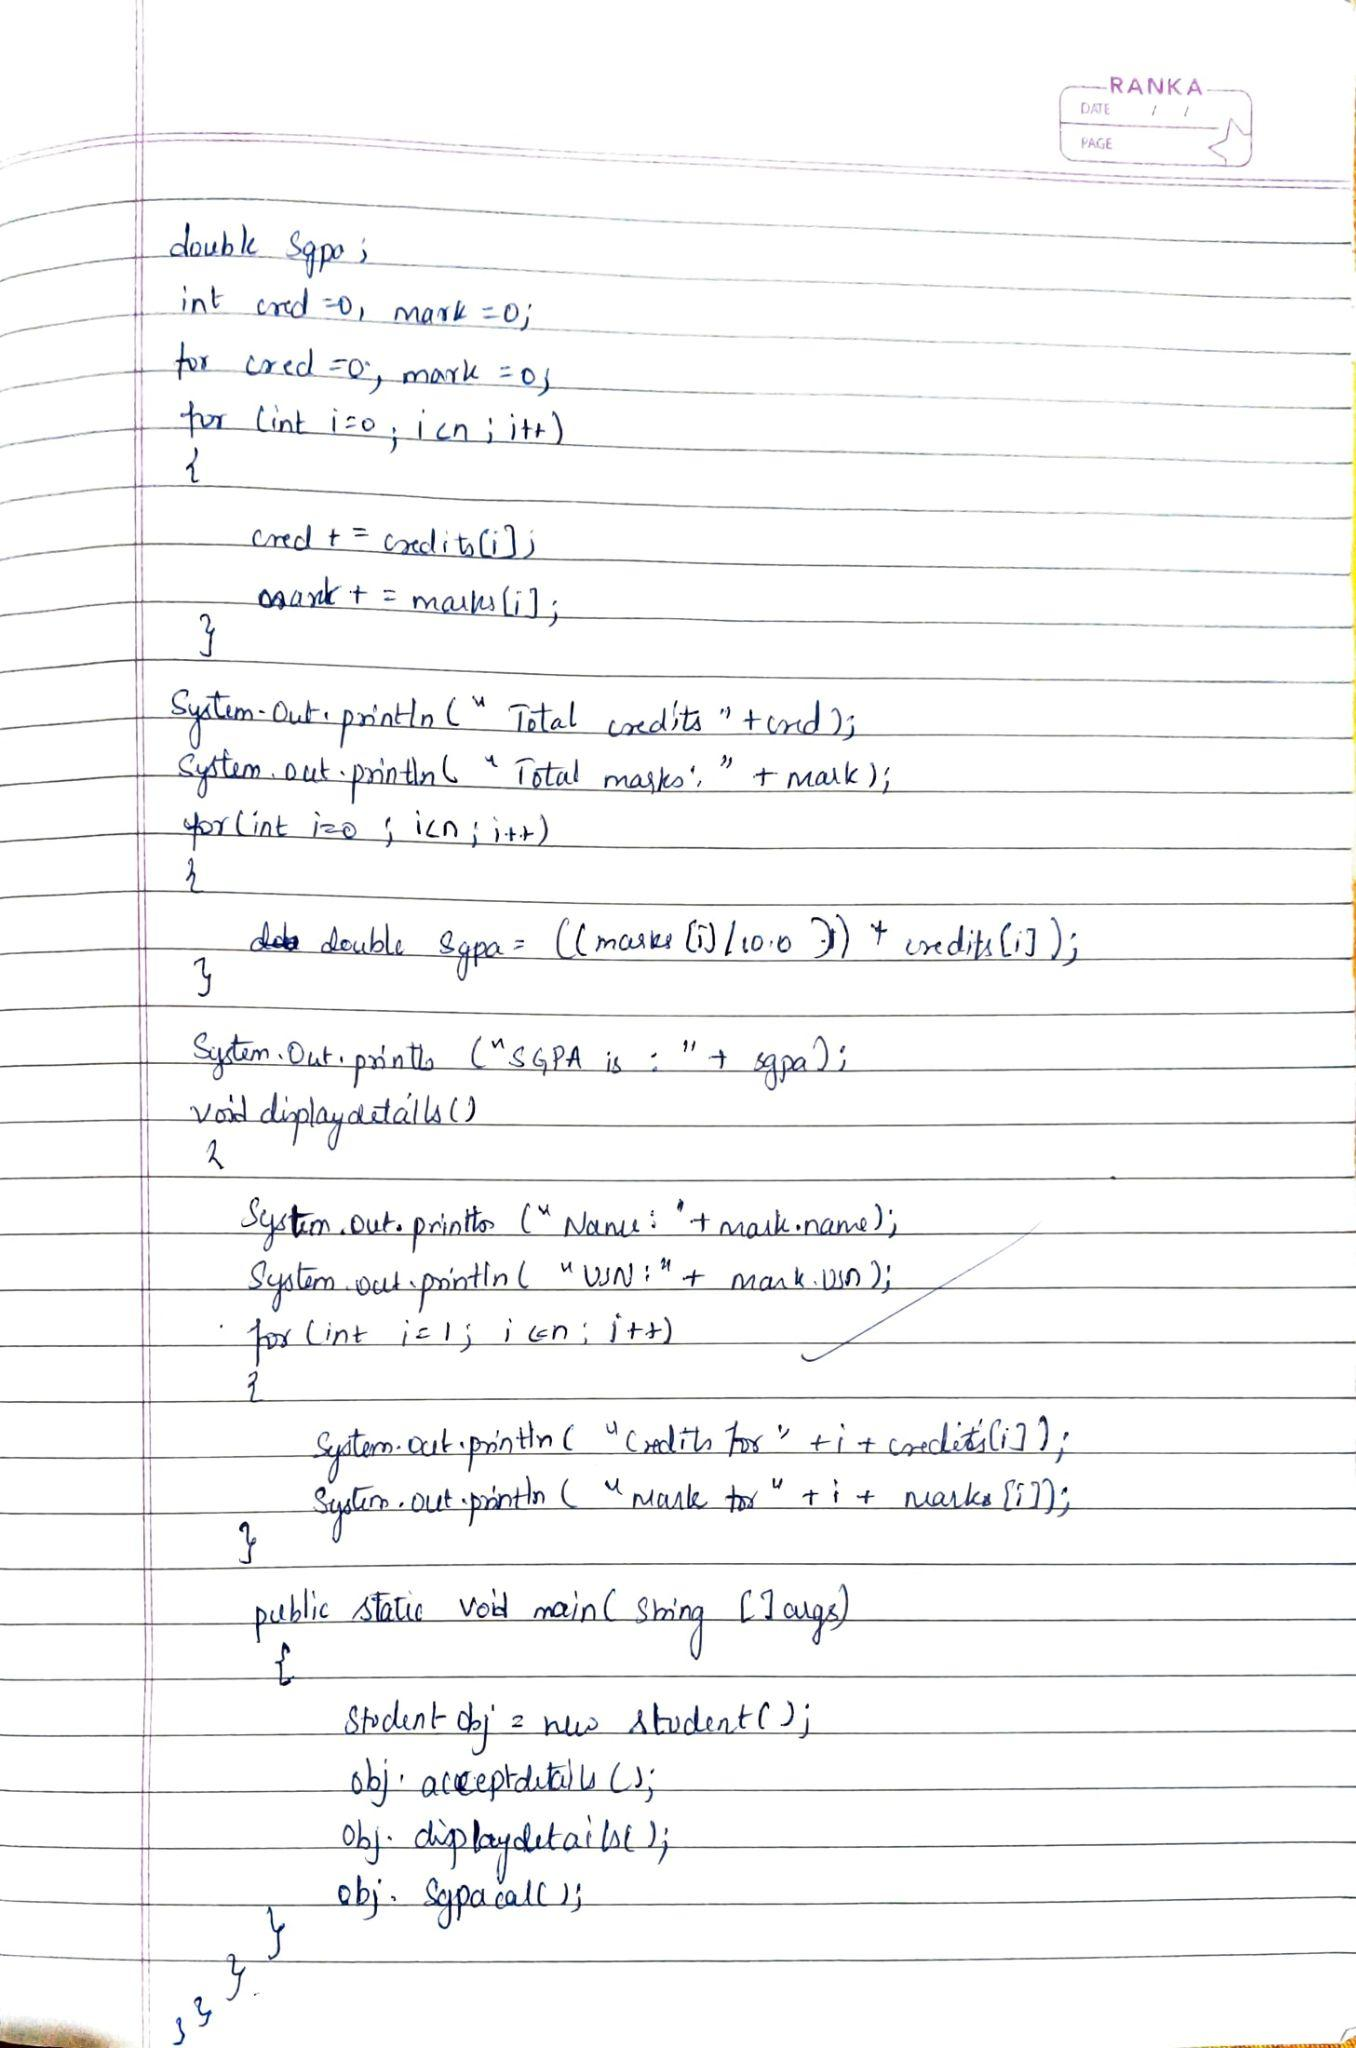 RANKA
DATE / /
PAGE
double Sgpa;
int cred =0, mark =0;
for cred =0; mark =0;
for (int i=0; i<n; i++)
{
cred + = credits[i];
mark + = marks[i];
}
System.Out.println(" Total credits "+cred);
System.out.println( " Total marks: " + mark);
for(int i=0 ; i<n; i++)
{
double sgpa = ((marks[i]/10.0 )) * credits[i]);
}
System.Out.println ("SGPA is : " + sgpa);
void displaydetails()
{
System.out.println (" Name: "+ mark.name);
System.out.println( " USN:" + mark.usn);
for (int i=1; i<=n; i++)
{
System.out.println( "Credits for" +i+ credits[i]);
System.out.println ( " mark for " +i+ marks[i]);
}
public static void main( String []args)
{
Student obj = new student();
obj. acceptdetails();
obj. displaydetails();
obj. Sgpacal();
}
}
}
}